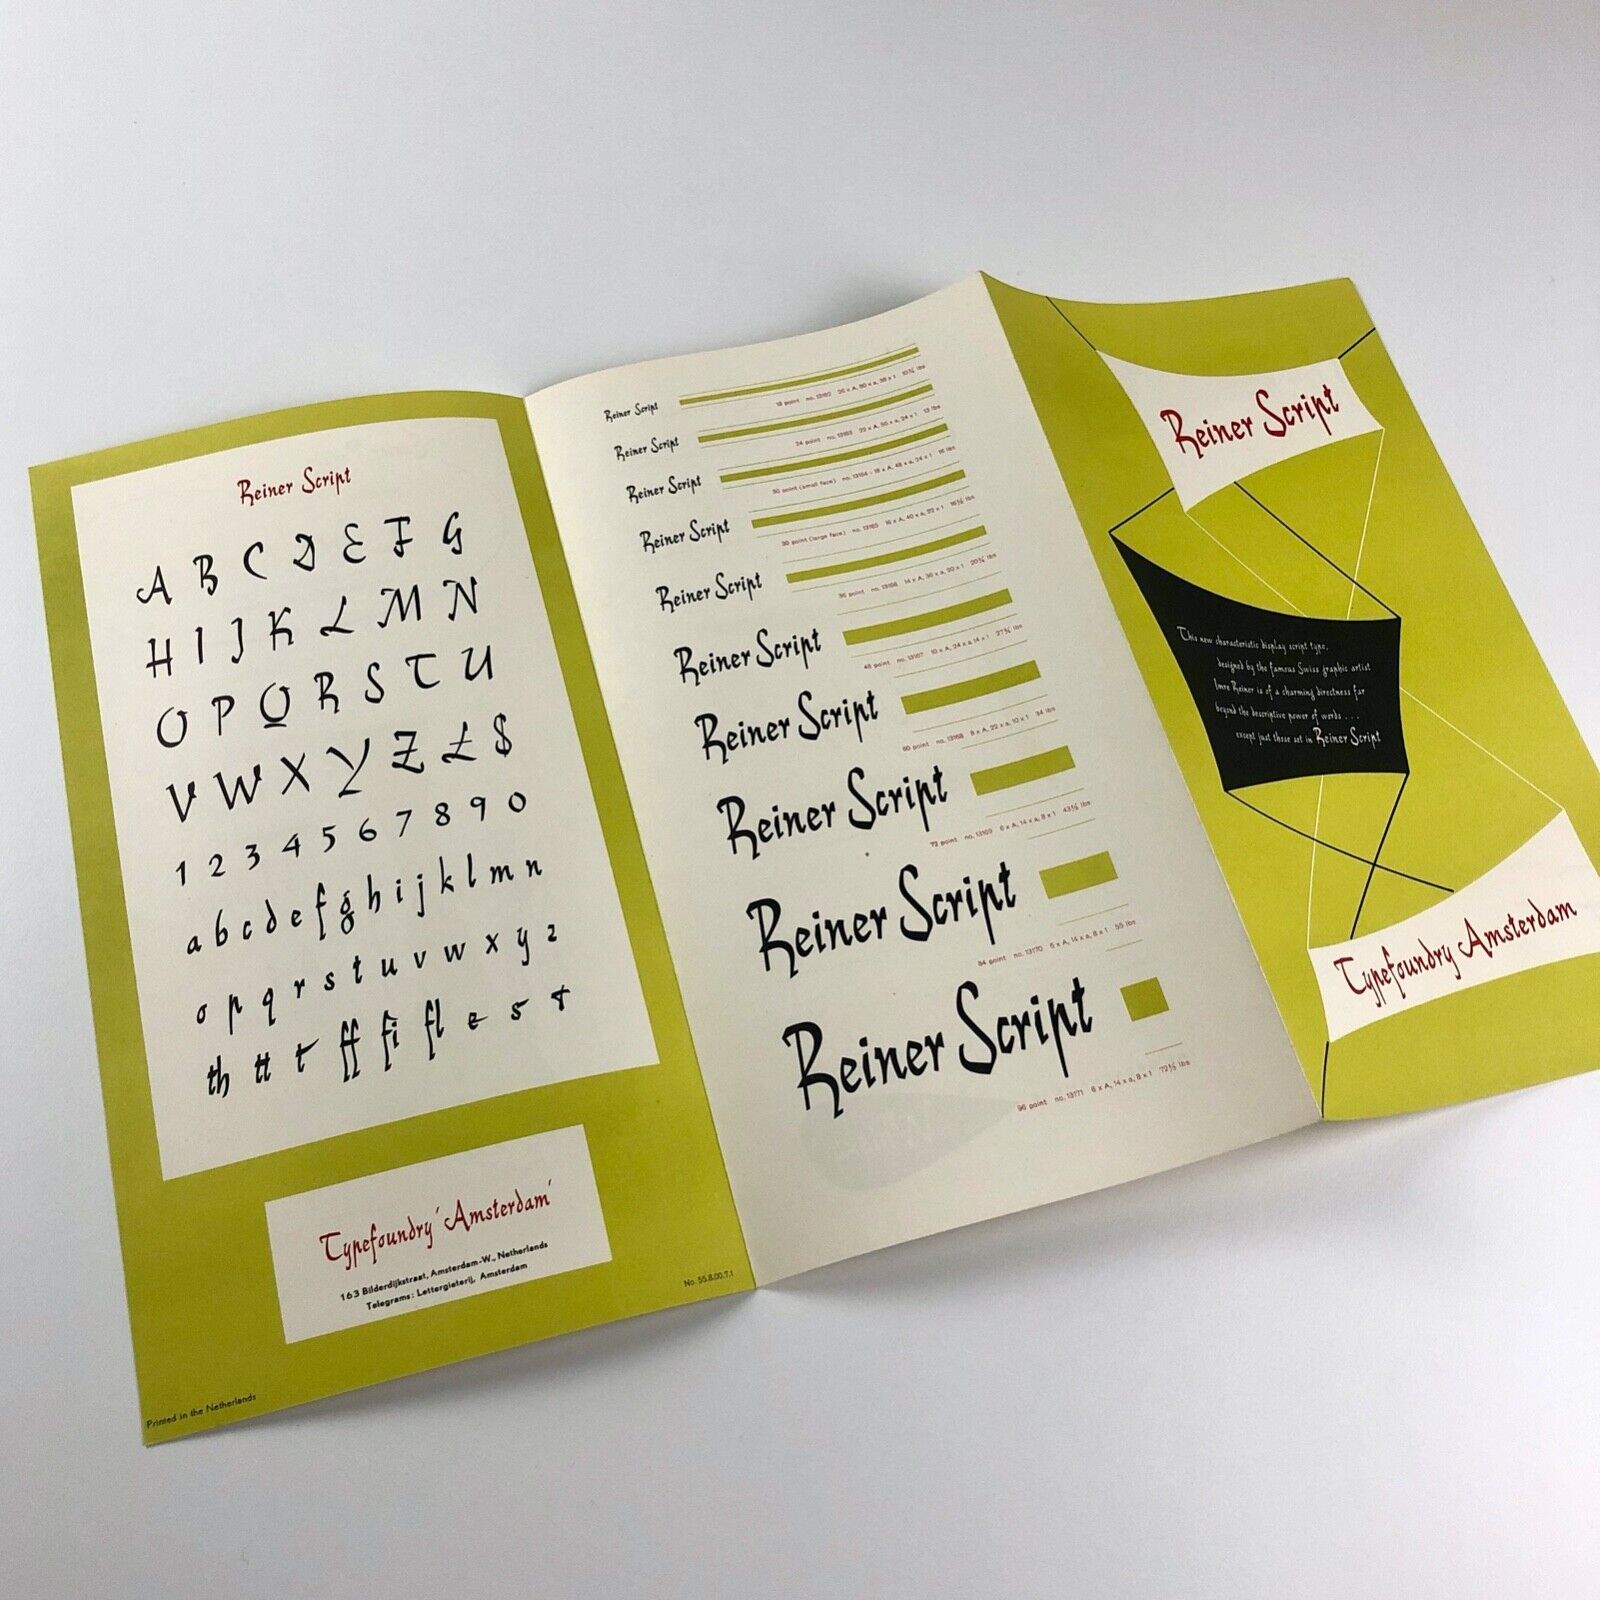 Reiner Script
A B C D E F G
H I J K L M N
O P Q R S T U
V W X Y Z £ $
1 2 3 4 5 6 7 8 9 0
a b c d e f g h i j k l m n
o p q r s t u v w x y z
th tt t ff fi fl e s t
Typefoundry 'Amsterdam'
163 Bilderdijkstraat, Amsterdam-W., Netherlands
Telegrams: Lettergieterij, Amsterdam
Printed in the Netherlands
No. 55.8.00.7.1
Reiner Script
18 point no. 13162 26 x A, 80 x a, 38 x 1 10¾ lbs
Reiner Script
24 point no. 13163 22 x A, 50 x a, 24 x 1 13 lbs
Reiner Script
30 point (small face) no. 13164 - 18 x A, 48 x a, 24 x 1 16 lbs
Reiner Script
30 point (large face) no. 13165 16 x A, 40 x a, 22 x 1 lbs
Reiner Script
36 point no. 13166 14 x A, 36 x a, 20 x 1 lbs
Reiner Script
48 point no. 13167 10 x A, 24 x a, 14 x 1 lbs
Reiner Script
60 point no. 13168 8 x A, 22 x a, 10 x 1 34 lbs
Reiner Script
72 point no. 13169 6 x A, 14 x a, 8 x 1 lbs
Reiner Script
84 point no. 13170 6 x A, 14 x a, 8 x 1 55 lbs
Reiner Script
96 point no. 13171 6 x A, 14 x a, 8 x 1 72½ lbs
Reiner Script
This new characteristic display script type,
designed by the famous Swiss graphic artist
Imre Reiner is of a charming directness far
beyond the descriptive power of words . . .
except just those set in Reiner Script
Typefoundry Amsterdam